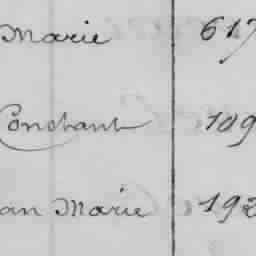 Marie 617
Constant 109
an Marie 192